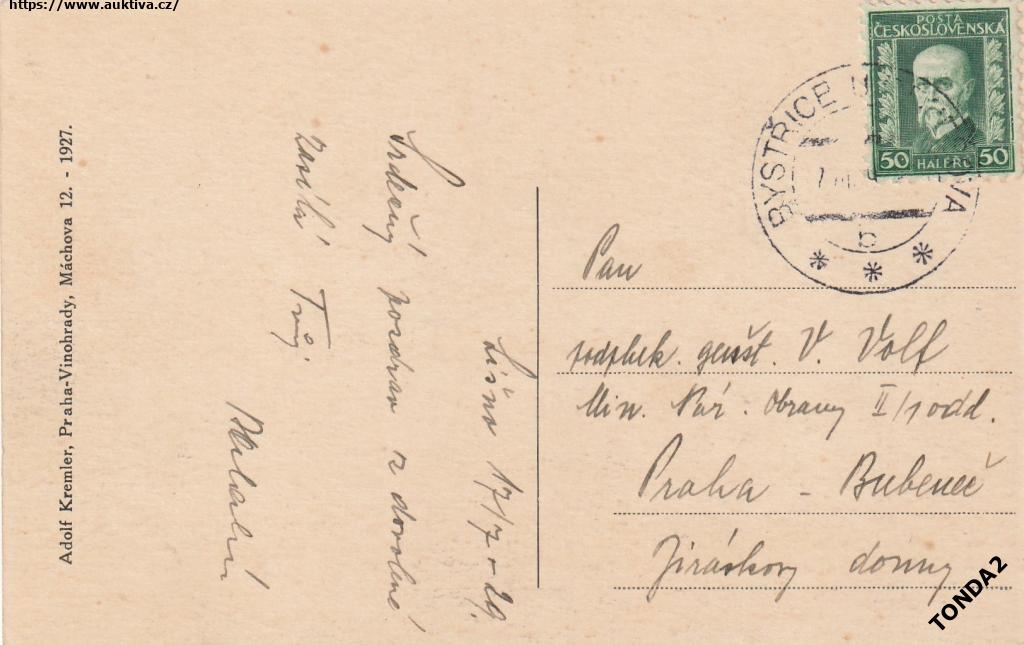 https://www.auktiva.cz/
POŠTA
ČESKOSLOVENSKÁ
50 HALÉŘŮ 50
BYSTŘICE U
b
Adolf Kremler, Praha-Vinohrady, Máchova 12. - 1927.
Líšno 17/7 - 29.
Srdečný pozdrav z dovolené
zasílá Tvůj
Pan
V. Volf
Min. Nár. Obrany II/1 odd.
Praha - Bubeneč
Jiráskovy domy
TONDA2